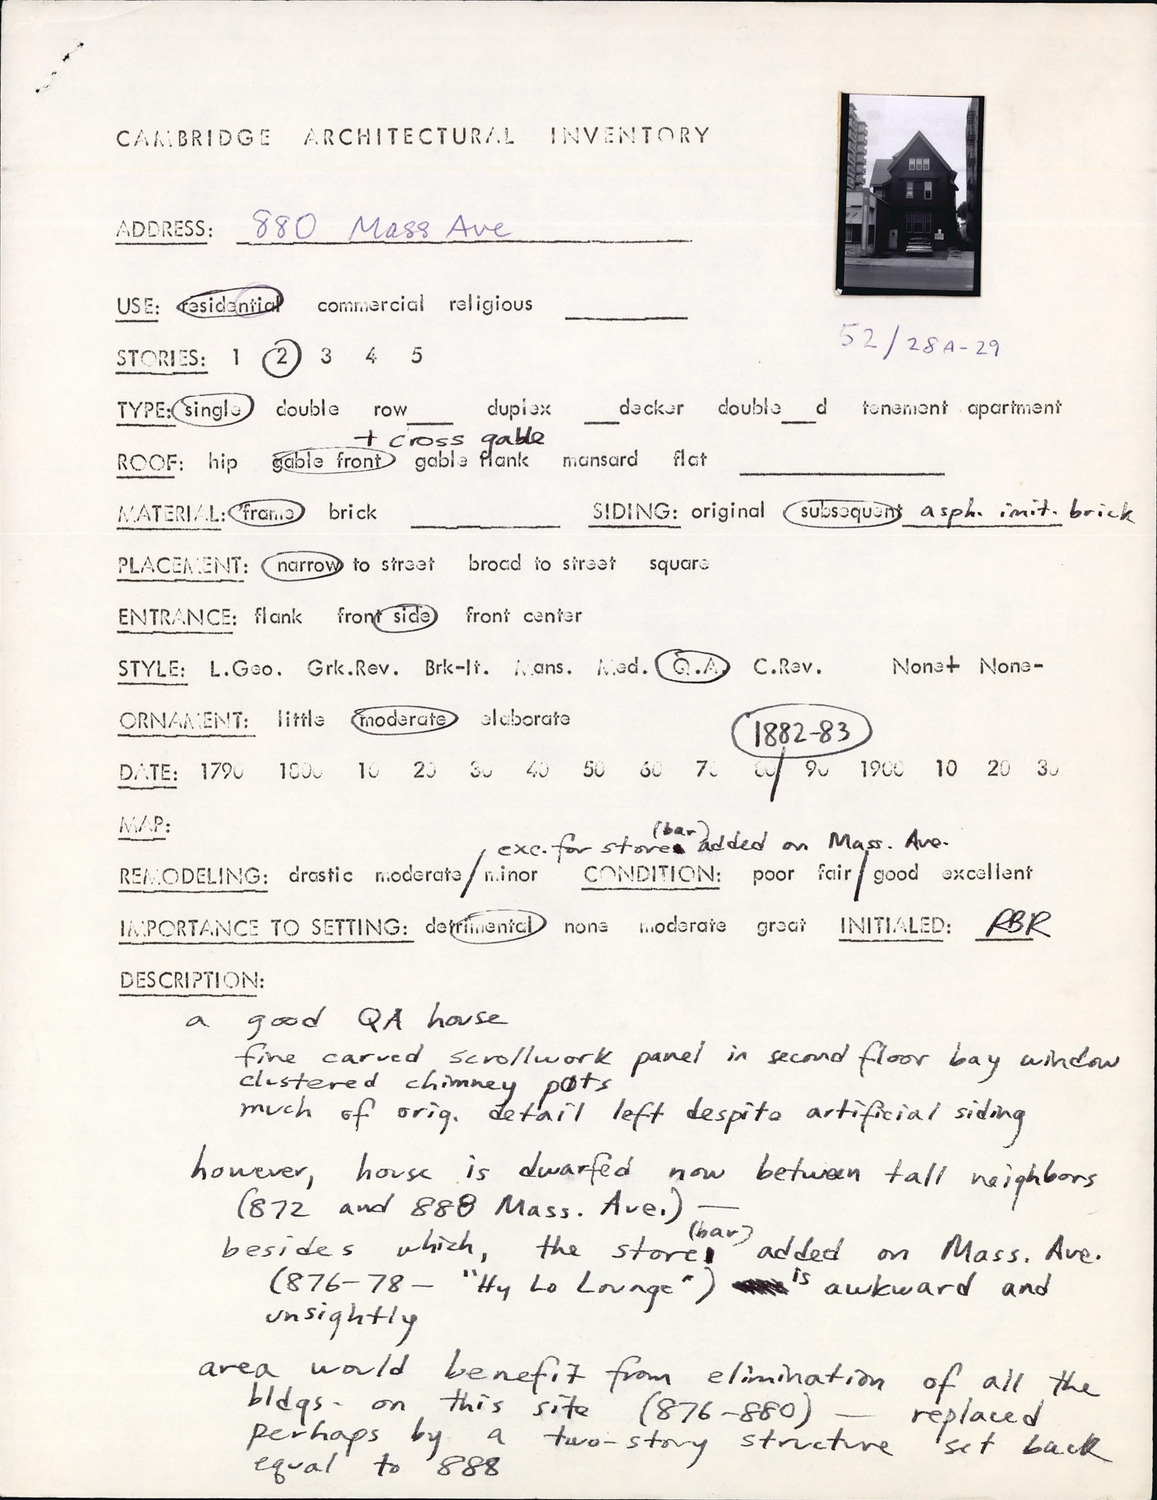 CAMBRIDGE ARCHITECTURAL INVENTORY
ADDRESS: 880 Mass Ave
USE: residential commercial religious
52/28A-29
STORIES: 1 2 3 4 5
TYPE: single double row___ duplex ___decker double___d tenement apartment
+ cross gable
ROOF: hip gable front gable flank mansard flat
MATERIAL: frame brick SIDING: original subsequent asph. imit. brick
PLACEMENT: narrow to street broad to street square
ENTRANCE: flank front side front center
STYLE: L.Geo. Grk.Rev. Brk-It. Mans. Med. Q.A. C.Rev. None+ None-
ORNAMENT: little moderate elaborate
1882-83
DATE: 1790 1800 10 20 30 40 50 60 70 80 90 1900 10 20 30
MAP:
(bar)
exc. for store added on Mass. Ave.
REMODELING: drastic moderate/minor CONDITION: poor fair/good excellent
IMPORTANCE TO SETTING: detrimental none moderate great INITIALED: RBR
DESCRIPTION:
a good QA house
fine carved scrollwork panel in second floor bay window
clustered chimney pots
much of orig. detail left despite artificial siding
however, house is dwarfed now between tall neighbors
(872 and 888 Mass. Ave.) —
(bar)
besides which, the store added on Mass. Ave.
(876-78 - "Hy Lo Lounge") is awkward and
unsightly
area would benefit from elimination of all the
bldgs. on this site (876-880) — replaced
perhaps by a two-story structure set back
equal to 888